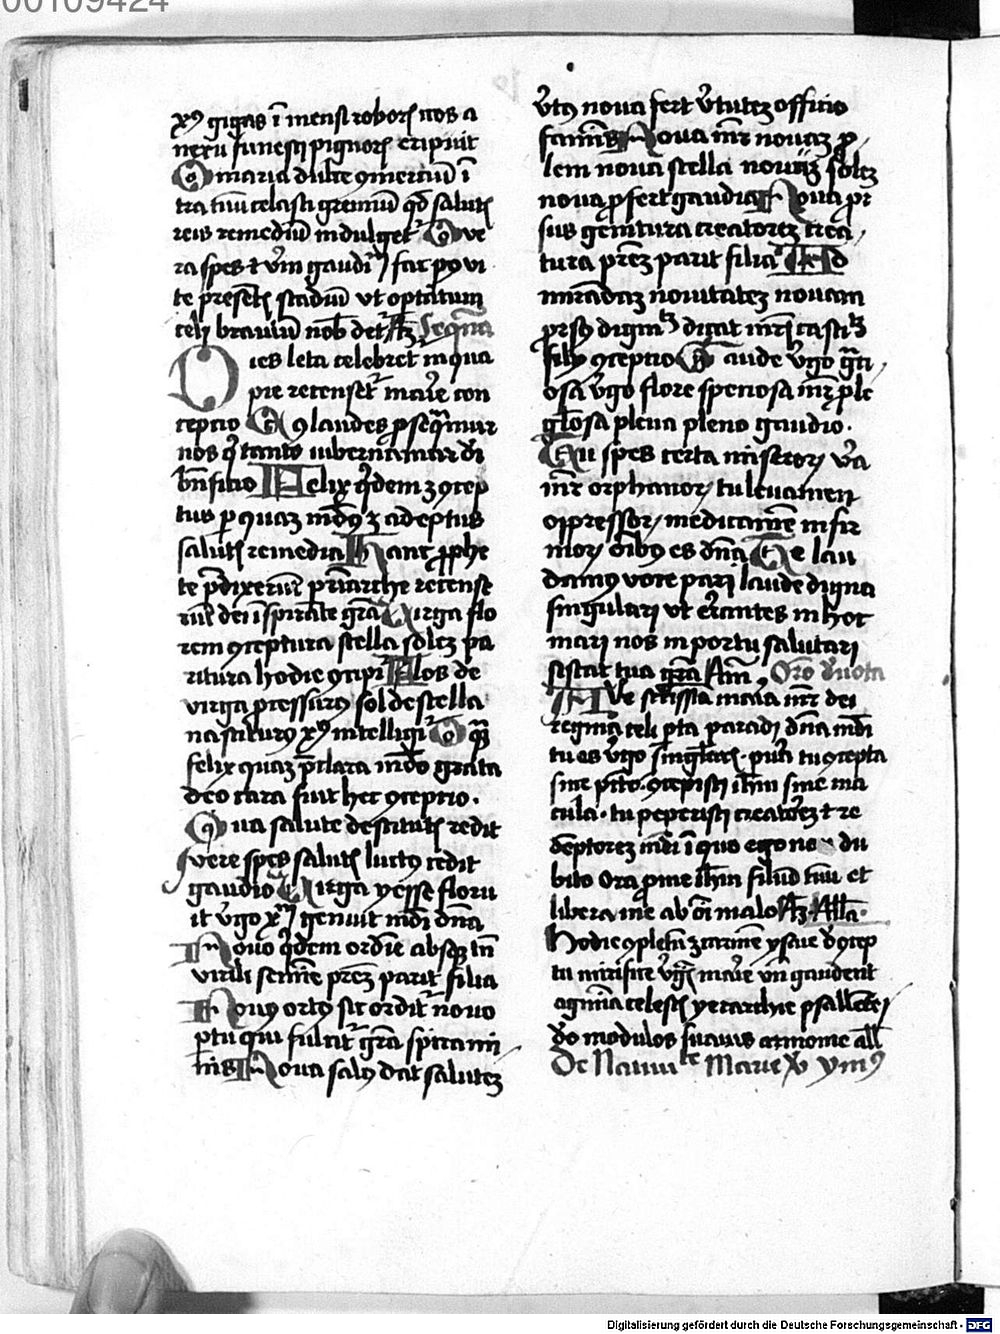 00109424
xp̄s gigas ī mensi roboris nos a
nexu funesti pignoris eripuit
O maria dulce ꝯmerciū ī
tra tuū celasti gremiū qd̄ salutis
reis remediū indulget O ve
ra spes et v̄m gaudiū fac p̄ꝯ vi
te p̄sentis stadiū vt optatum
celi brauiū nob̄ det̄ Am̄ Sequēcia
Dies leta celebret̄ in qua
pie recenset̄ marie con
cepcio laudes ꝓseqm̄ur
nos q̄ tanto
bn̄ficio Felix q̄dem ꝯcep
tus p quaz mūdꝯ ē adeptus
salutis remedia Hanc ꝓphe
te p̄dixerūt pr̄iarche recense
rūt dei īspirāte gr̄a Virga flo
rem ꝯceptura stella solez pa
ritura hodie ꝯcipit̄ Flos de
virga pcessurꝯ sol de stella
nasciturꝯ xp̄s intelligit̄ O qm̄
felix quaz p̄clara mūdo grata
deo cara fuit hec ꝯcepcio.
Qua salute destitutis redit
vere spes salutis luctꝯ cedit
gaudio Virga yesse floru
it v̄go xp̄m genuit mūdi dn̄a
Nouo q̄dem ordīe absqꝫ tn̄
virili semīe prēz parit filia
Nouꝯ ortꝯ sic ordit̄ nouo
ptu qui fulcit̄ gr̄a spiramī
nis Noua salꝯ dat salutez
v̄tꝯ noua fert v̄tutez officio
famīs Noua mr̄ nouaz ꝓ
lem noua stella nouūz solez
noua ꝓfert gaudia Noua pr
sus genitura creatorez crea
tura prēz parit filia Ad
mirādaz nouitatez nouam
ꝓrsꝯ dignitatē dicat mr̄is castitatē
filij ꝯcepcio Gaude v̄go gr̄ci
osa v̄go flore speciosa mr̄qꝫ ple
gl̄osa plena pleno gaudio.
Tu spes certa miseroꝝ v̄a
mr̄ orphanoꝝ tu leuamen
oppressoꝝ medicamē infir
moꝝ oībꝯ es oīa Te lau
damꝯ voce pari laude digna
singulari vt errantes in hoc
mari nos in portu salutari
sistat tua gr̄a Am̄. Or̄o deuota
Aue scīssīa maīa mr̄ dei
regina celi pta paradi dn̄a mūdi
tu es v̄go singl̄aris pura tu ꝯcepta
sine pc̄to. ꝯcepisti ihm̄ sine ma
cula. tu peperisti creatorez et re
dēptorez mūdi ī quo ego no du
bito Ora p me ihm̄ filiū tuū et
libera me ab oī malo Am̄. All̄a.
Hodie ꝯpletū ē carmē ysaie de ꝯcep
tu mirifice v̄gīs marie vn̄ gaudent
agmina celestis yerarchie psallētes
deo modulos suauis armonie all̄
De Natiuitate Marie v̄ ymꝯ
Digitalisierung gefördert durch die Deutsche Forschungsgemeinschaft - DFG